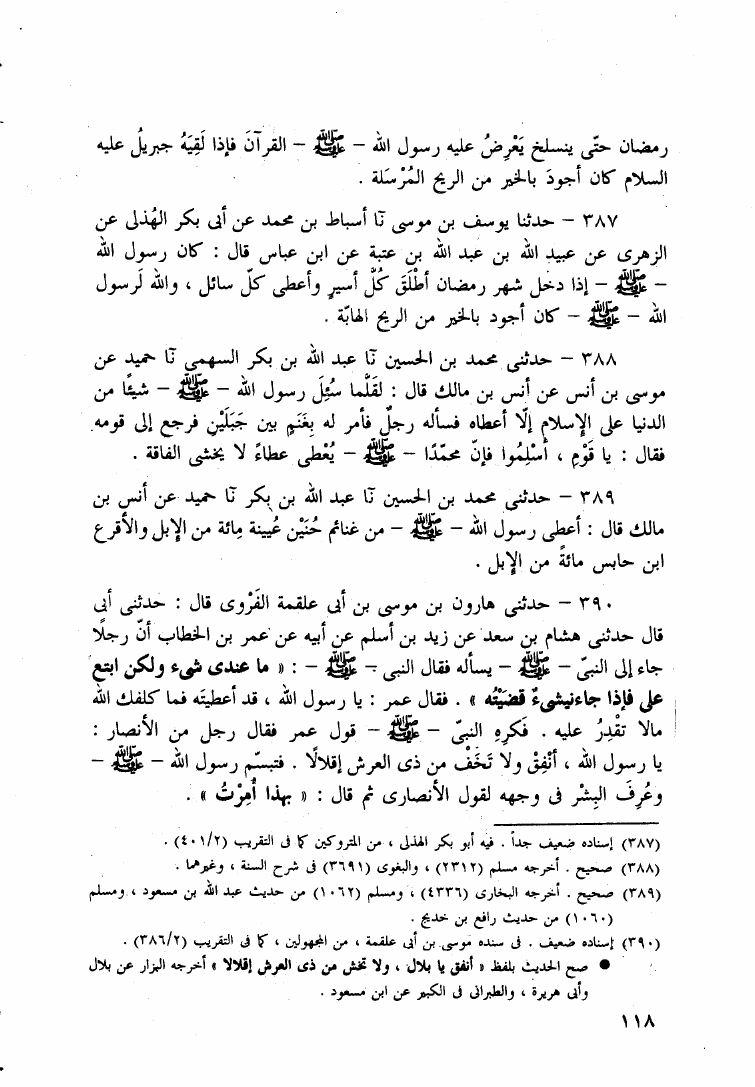 رمضان حتّى ينسلخ يَعْرِضُ عليه رسول الله – ﷺ – القرآنَ فإذا لَقِيَهُ جبريلُ عليه
السلام كان أجودَ بالخير من الريح المُرْسَلة .
٣٨٧ – حدثنا يوسف بن موسى نَا أسباط بن محمد عن أبى بكر الهُذلى عن
الزهرى عن عبيد الله بن عبد الله بن عتبة عن ابن عباس قال : كان رسول الله
– ﷺ – إذا دخل شهر رمضان أطْلَقَ كُلَّ أسيرٍ وأعطى كلّ سائل ، والله لَرسول
الله – ﷺ – كان أجود بالخير من الريح الهابّة .
٣٨٨ – حدثنى محمد بن الحسين نَا عبد الله بن بكر السهمى نَا حميد عن
موسى بن أنس عن أنس بن مالك قال : لقَلَّما سُئِلَ رسول الله – ﷺ – شيئًا من
الدنيا على الإسلام إلّا أعطاه فسأله رجلٌ فأمر له بِغَنَمٍ بين جَبَلَيْنِ فرجع إلى قومه
فقال : يا قَوْمِ ، أسْلِمُوا فإنّ محمّدًا – ﷺ – يُعْطى عطاءً لا يخشى الفاقة .
٣٨٩ – حدثنى محمد بن الحسين نَا عبد الله بن بكر نَا حميد عن أنس بن
مالك قال : أعطى رسول الله – ﷺ – من غنائم حُنَيْن عُيينة مِائة من الإبل والأقرع
ابن حابس مائةً من الإبل .
٣٩٠ – حدثنى هارون بن موسى بن أبى علقمة الفَرْوى قال : حدثنى أبى
قال حدثنى هشام بن سعد عن زيد بن أسلم عن أبيه عن عمر بن الخطاب أنّ رجلًا
جاء إلى النبىّ – ﷺ – يسأله فقال النبى – ﷺ – : « ما عندى شىء ولكن ابتع
على فإذا جاءنيشىءٌ قضَيْتُه » . فقال عمر : يا رسول الله ، قد أعطيتَه فما كلفك الله
مالا تقْدِرُ عليه . فَكَرِهِ النبىّ – ﷺ – قول عمر فقال رجل من الأنصار :
يا رسول الله ، أنْفِقْ ولا تَخَفْ من ذى العرش إقلالًا . فتبسّم رسول الله – ﷺ –
وعُرِفَ البِشْر فى وجهه لقول الأنصارى ثم قال : « بهذا أُمِرْتُ » .
(٣٨٧) إسناده ضعيف جداً . فيه أبو بكر الهذلى ، من المتروكين كما فى التقريب (٤٠١/٢) .
(٣٨٨) صحيح . أخرجه مسلم (٢٣١٢) ، والبغوى (٣٦٩١) فى شرح السنة ، وغيرهما .
(٣٨٩) صحيح . أخرجه البخارى (٤٣٣٦) ، ومسلم (١٠٦٢) من حديث عبد الله بن مسعود ، ومسلم
(١٠٦٠) من حديث رافع بن خديج .
(٣٩٠) إسناده ضعيف . فى سنده موسى بن أبى علقمة ، من المجهولين ، كما فى التقريب (٣٨٦/٢) .
● صح الحديث بلفظ « أنفق يا بلال ، ولا تخش من ذى العرش إقلالا » أخرجه البزار عن بلال
وأبى هريرة ، والطبرانى فى الكبير عن ابن مسعود .
١١٨